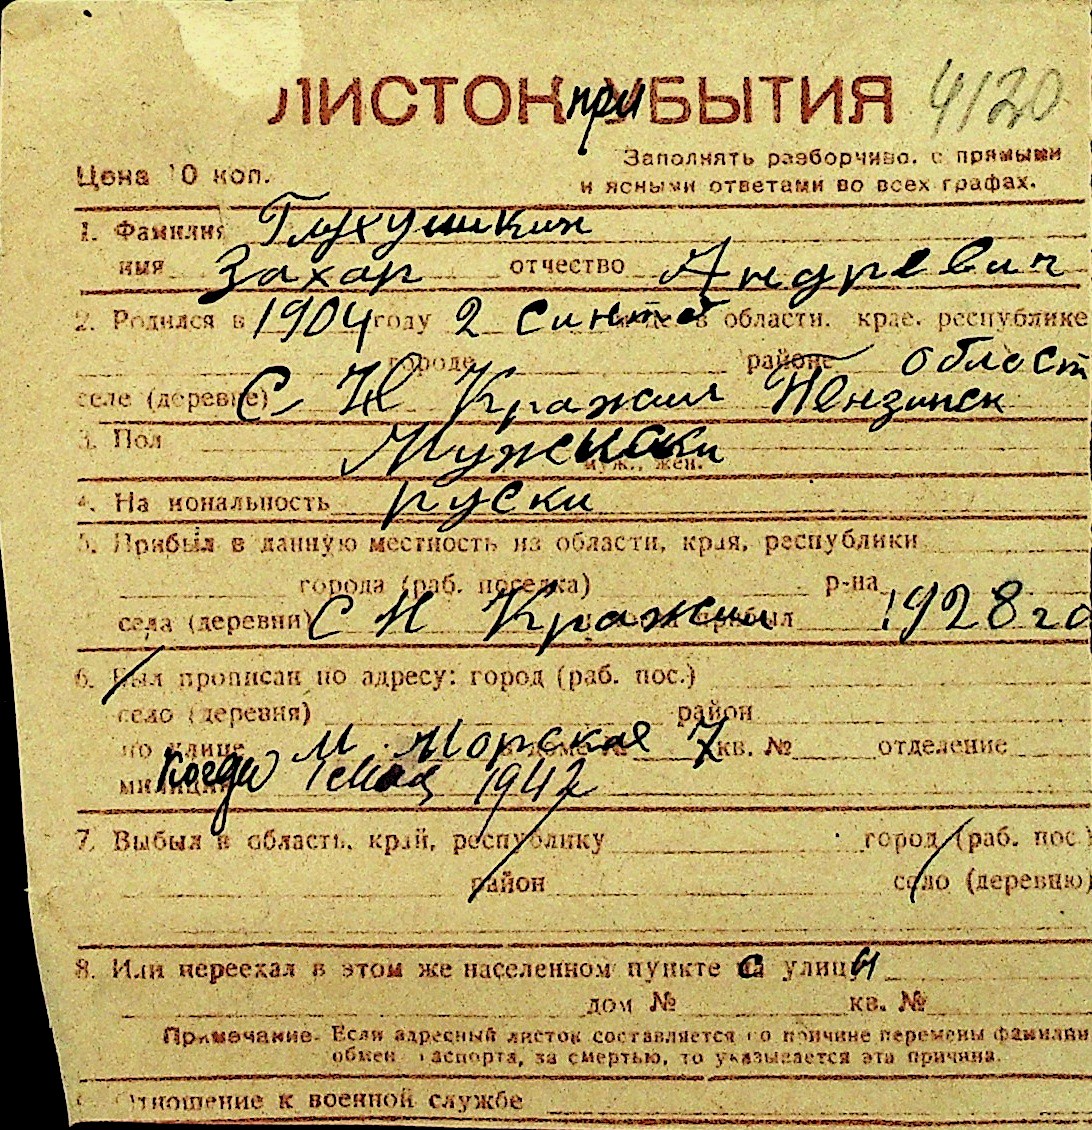 ЛИСТОК при УБЫТИЯ 4120
Цена 10 коп.
Заполнять разборчиво, с прямыми
и ясными ответами во всех графах.
1. Фамилия Глухушкин
имя Захар отчество Андревич
2. Родился в 1904 году 2 в области, крае, республике
городе районе област
селе (деревне) С Н Кряжим Пензинск
3. Пол Мужски
муж., жен.
4. Национальность руски
5. Прибыл в данную местность из области, края, республики
города (раб. поселка) р-на
села (деревни) С Н Кряжим прибыл 1928 го
6. Был прописан по адресу: город (раб. пос.)
село (деревня) район
по улице М Морская 7 кв. № отделение
милиции когда 1942
7. Выбыл в область, край, республику город (раб. пос.)
район село (деревню)
8. Или переехал в этом же населенном пункте с улицы
дом № кв. №
Примечание. Если адресный листок составляется по причине перемены фамилии
обмен паспорта, за смертью, то указывается эта причина.
Отношение к военной службе